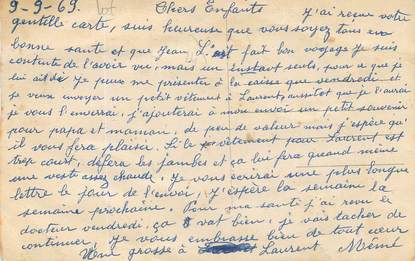 9-9-69. Chers Enfants
J'ai reçue votre
gentille carte, suis heureuse que vous soyez tous en
bonne santé et que Jean L. ait fait bon voyage je suis
contente de l'avoir vu, mais un instant seul, pour ce que je
lui ai dit je peux me présenter à la caisse que vendredi et
je veux envoyer un petit vêtement à Laurent, aussitôt que je l'aurai
je vous l'enverrai, j'ajouterai à mon envoi un petit souvenir
pour papa et maman, de peu de valeur mais j'espère qu'
il vous fera plaisir. Si le vêtement pour Laurent est
trop court, défera les jambes et ça lui fera quand même
une veste assez chaude, je vous écrirai une plus longue
lettre le jour de l'envoi, j'espère la semaine la
semaine prochaine. Pour ma santé j'ai revu le
docteur vendredi, ça vat bien, je vais tacher de
continuer, je vous embrasse bien de tout cœur
Une grosse à Laurent Mémé